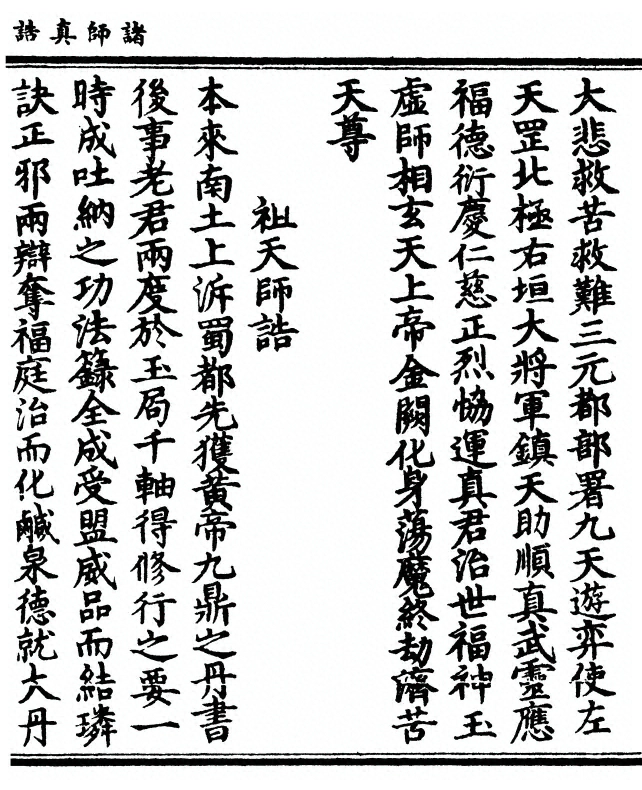 誥真師諸
大悲救苦救難三元都部署九天遊弈使左
天罡北極右垣大將軍鎮天助順真武靈應
福德衍慶仁慈正烈恊運真君治世福神玉
虛師相玄天上帝金闕化身蕩魔終劫濟苦
天尊
祖天師誥
本來南土上泝蜀都先獲黃帝九鼎之丹書
後事老君兩度於玉局千軸得修行之要一
時成吐納之功法籙全成受盟威品而結璘
訣正邪兩辯奪福庭治而化鹹泉德就大丹